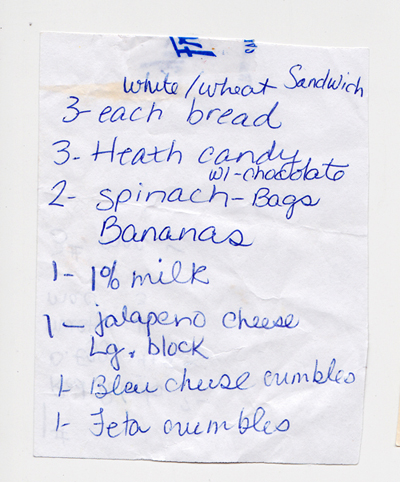 white/wheat Sandwich
3-each bread
3-Heath candy
w/-chocolate
2-spinach-Bags
Bananas
1-1% milk
1-jalapeno cheese
Lg. block
1-Bleu cheese crumbles
1-Feta crumbles